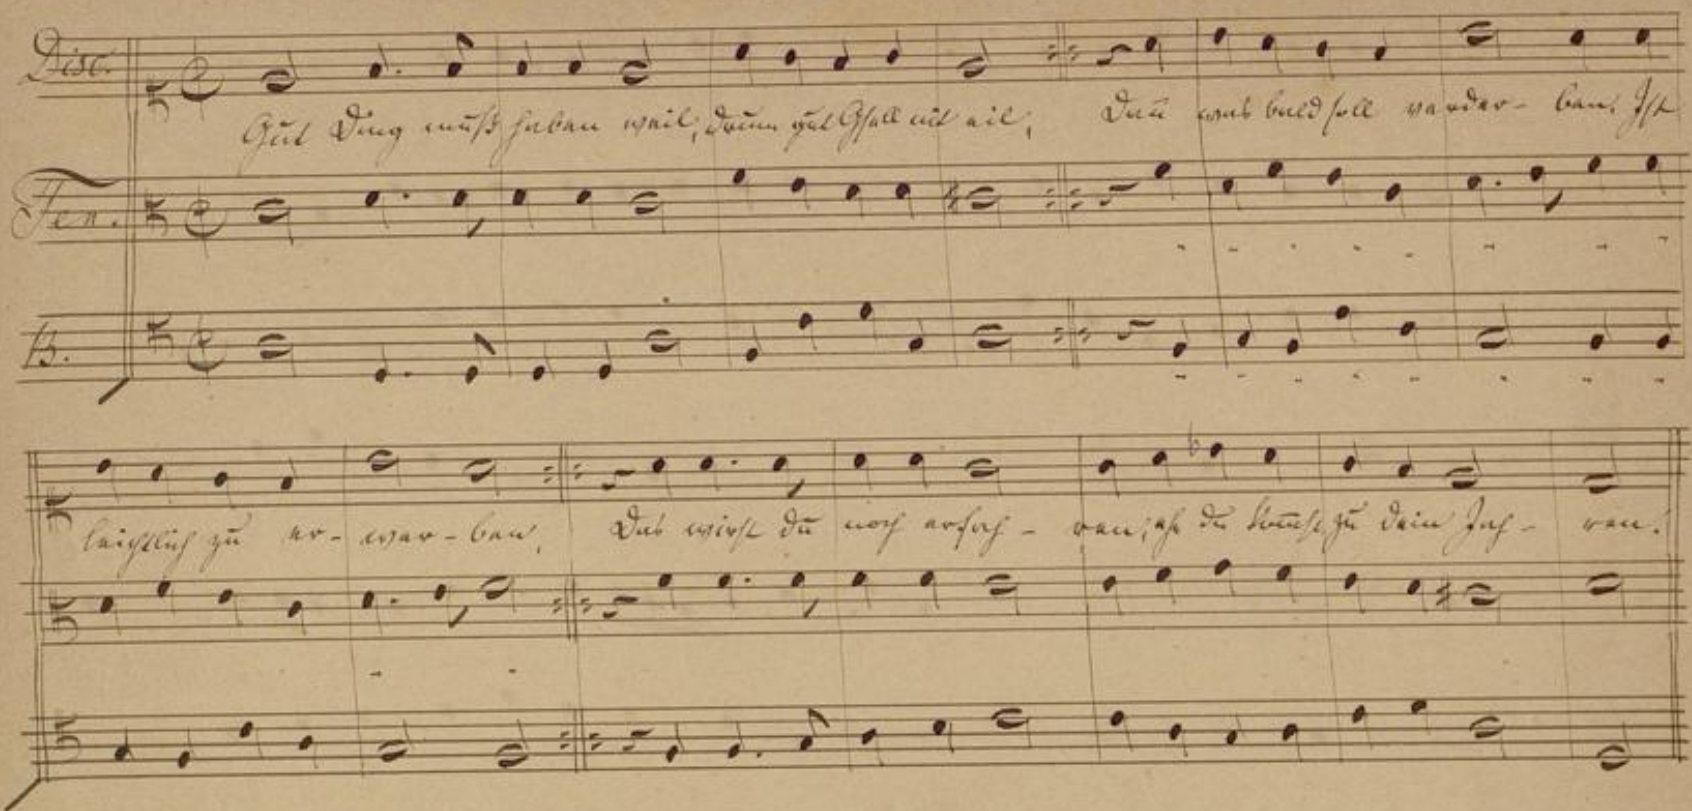 Disc.
Gut Ding muß haben weil, drum gut Gsell nit eil, Dañ was bald soll verder- ben, Ist
Ten.
B.
leichtlich zu er- wer- ben, Das wirst du noch erfah- ren, eh du kom̄st zu dein Jah- ren.